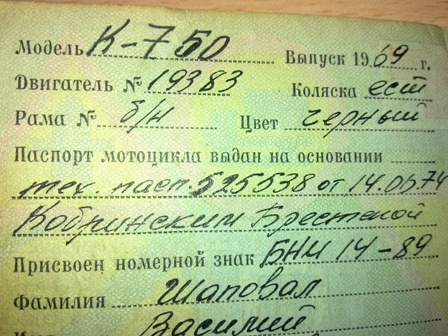 Модель К-750 Выпуск 1969 г.
Двигатель № 19383 Коляска ест
Рама № б/н Цвет черный
Паспорт мотоцикла выдан на основании
тех. пасп. 525538 от 14.06.74
Кобринским Брестской
Присвоен номерной знак БНИ 14-89
Фамилия Шаповал
Василий